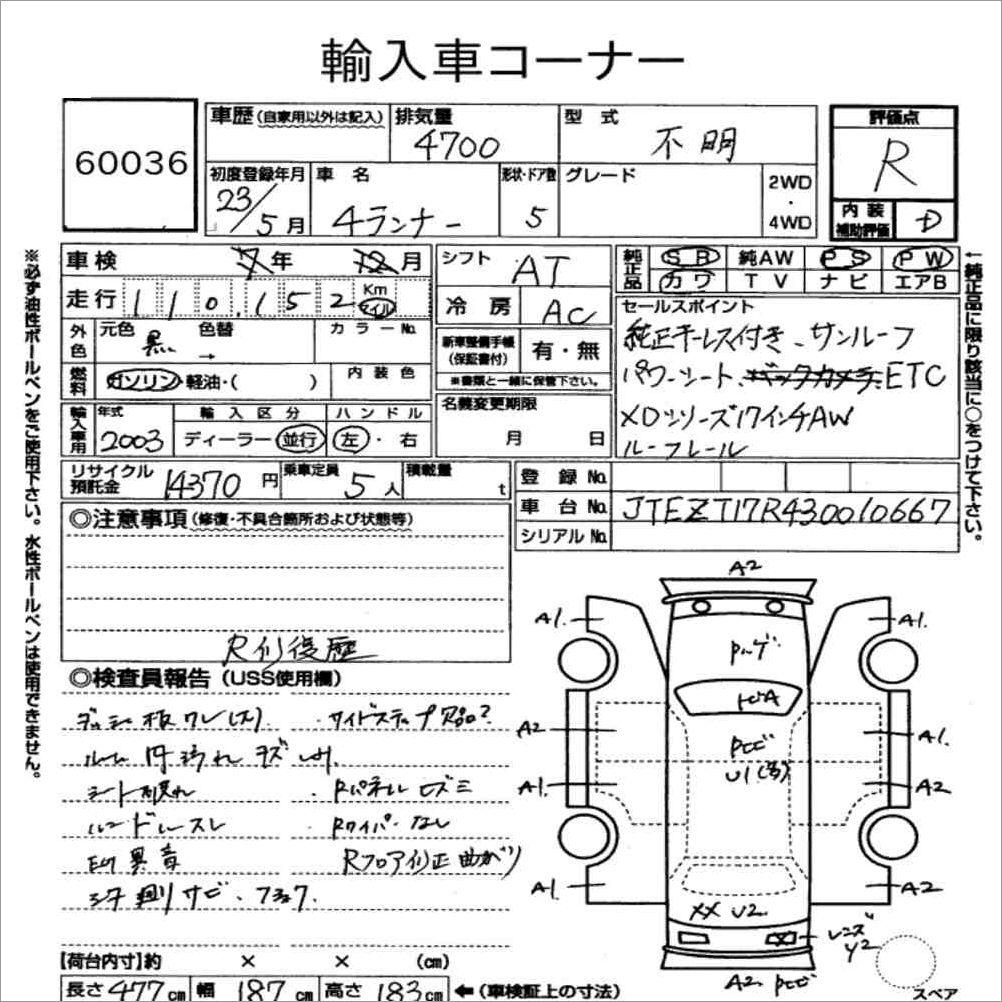 輸入車コーナー
60036
車歴(自家用以外は記入)
排気量
4700
型式
不明
評価点
R
初度登録年月
23/5月
車名
4ランナー
形状・ドア数
5
グレード
2WD
・
4WD
内装
補助評価
D
車検 7年 12月
シフト
AT
純正品
SR 純AW PS PW
カワ TV ナビ エアB
走行 110,152 Km マイル
冷房
AC
セールスポイント
純正キーレス付き、サンルーフ
パワーシート、バックカメラ、ETC
XDシリーズ17インチAW
ルーフレール
外色
元色
黒
色替
→
カラーNo.
新車整備手帳
(保証書付)
有・無
※書類と一緒に保管下さい。
燃料
ガソリン・軽油・( )
内装色
輸入車用
年式
2003
輸入区分
ディーラー・並行
ハンドル
左・右
名義変更期限
月 日
リサイクル
預託金
14370円
乗車定員
5人
積載量
t
登録No.
車台No.
JTEZT17R430010667
シリアルNo.
※必ず油性ボールペンをご使用下さい。水性ボールペンは使用できません。
↑純正品に限り該当に○をつけて下さい。
◎注意事項(修復・不具合箇所および状態等)
R修復歴
◎検査員報告(USS使用欄)
ルーム内汚れ キズ
シート
EG異音
サビ、
・サイドステップ
・Rパネル
・Rワイパーなし
Rフロア修正 曲がり
A2
A1.
A1.
A2
A1.
A1.
A2
A1.
A2
U1
XX U2.
レンズ
Y2
A2
スペア
【荷台内寸】約 × × (cm)
長さ477cm 幅187cm 高さ183cm ←(車検証上の寸法)